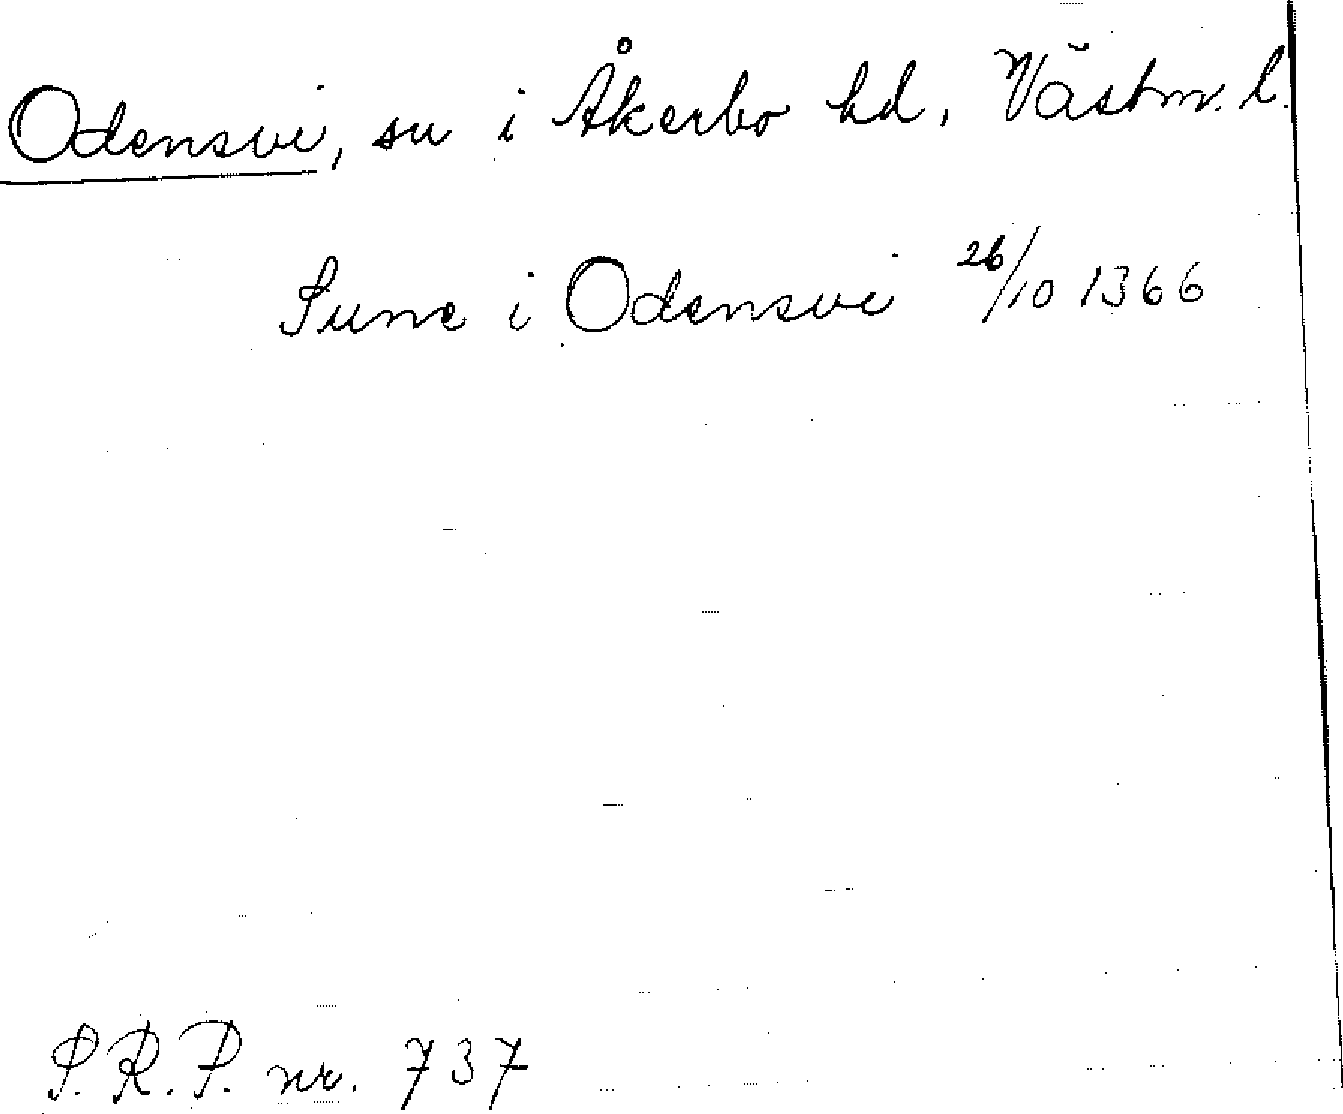 Odensvi, sn i Åkerbo hd, Västm. l.
Sune i Odensvi 26/10 1366
S.R.P. nr. 737